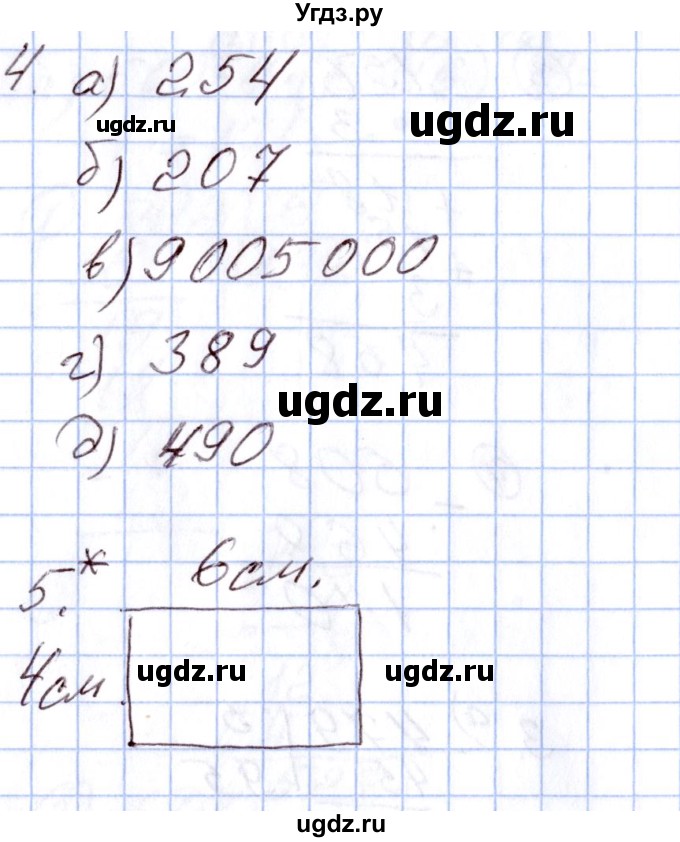 Угдз.ру
4. а) 254
ugdz.ru
ugdz.ru
б) 207
в) 9005000
г) 389
ugdz.ru
д) 490
5.* 6см.
4см
ugdz.ru
ugdz.ru
ugdz.ru